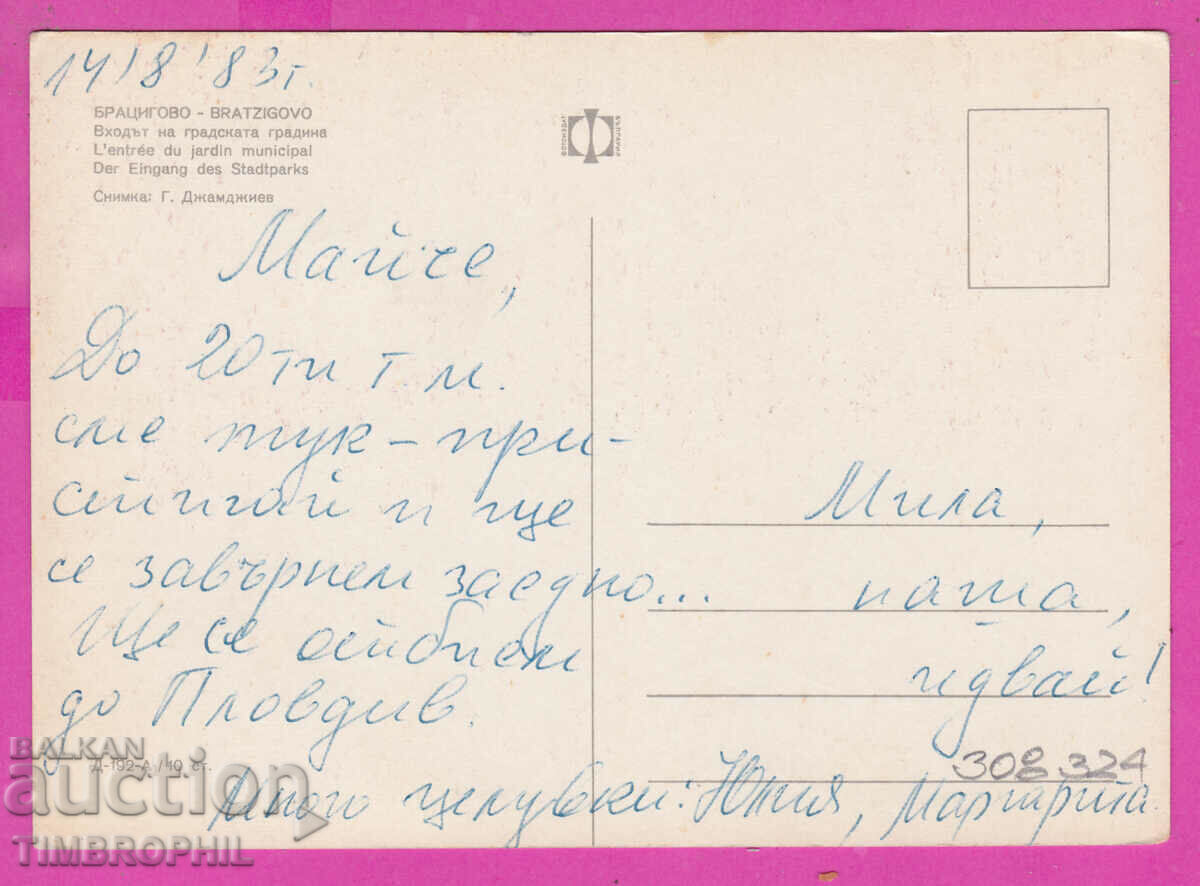 14/8'83г.
БРАЦИГОВО - BRATZIGOVO
Входът на градската градина
L'entrée du jardin municipal
Der Eingang des Stadtparks
Снимка: Г. Джамджиев
ФОТОИЗДАТ
БЪЛГАРИЯ
Майче,
До 20ти т.м.
сме тук - при-
стигай и ще
се завърнем заедно...
Ще се отбием
до Пловдив.
Много целувки: Юлия, Маргарита
Мила,
наша,
идвай!
308324
Д-192-А / 10 ст.
BALKAN
auction
TIMBROPHIL